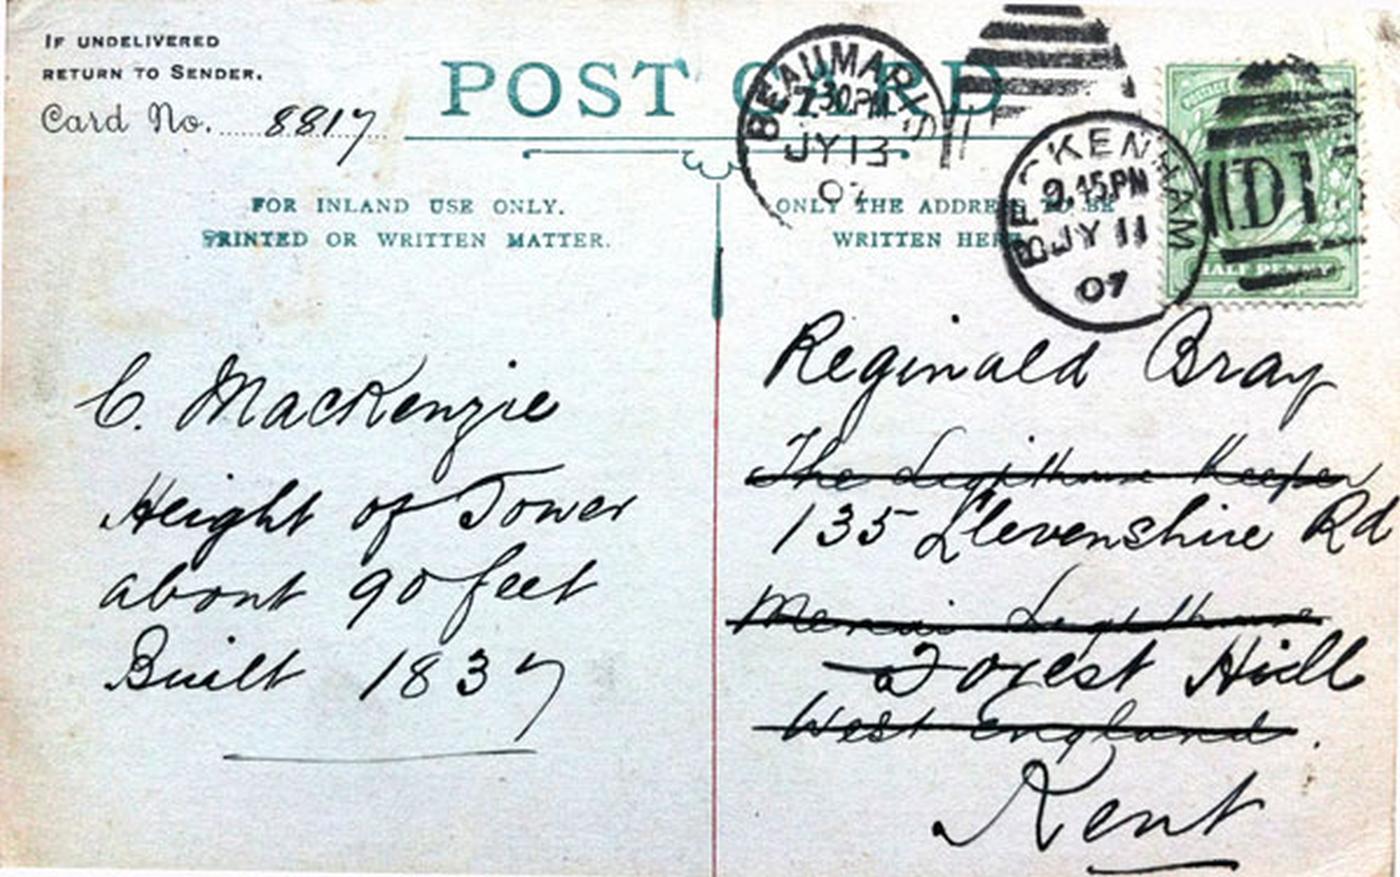 IF UNDELIVERED
RETURN TO SENDER.
Card No. 8817
POST CARD
BEAUMARIS
7.30PM
JY 13
07
BECKENHAM
9.45PM
JY 11
07
D
HALF PENNY
FOR INLAND USE ONLY.
PRINTED OR WRITTEN MATTER.
ONLY THE ADDRESS TO BE
WRITTEN HERE
C. MacKenzie
Height of Tower
about 90 feet
Built 1837
Reginald Bray
The Ligthouse Keeper
135 Llevenshire Rd
Menai Ligthouse
Forest Hill
West England.
Kent